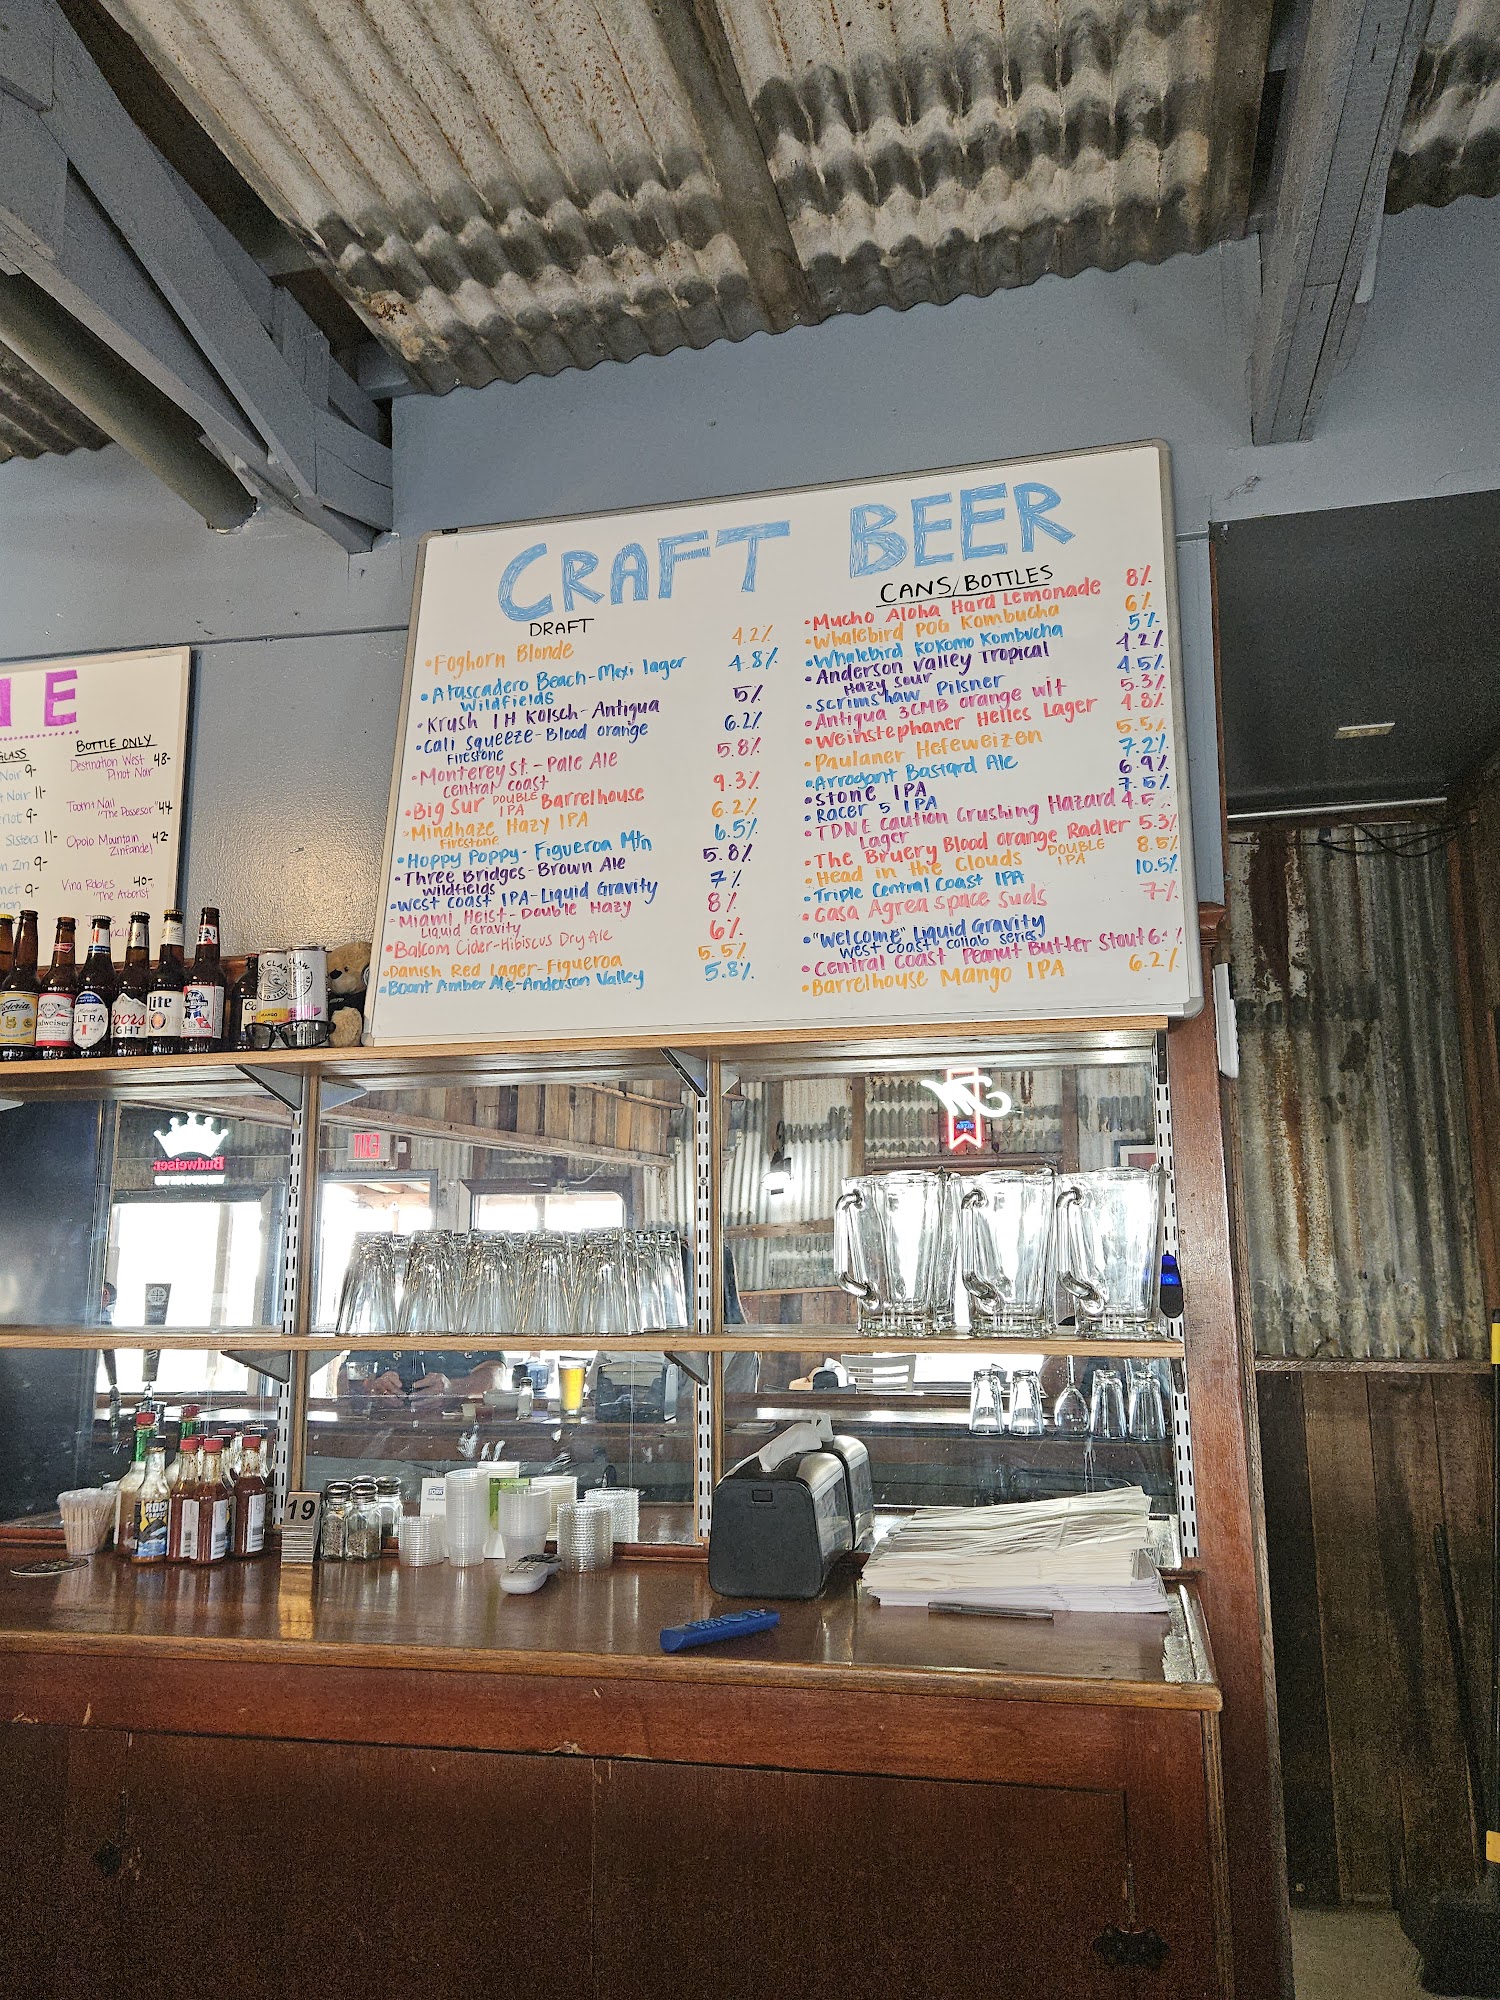 CRAFT BEER
DRAFT
• Foghorn Blonde 4.2%
• Atascadero Beach-Mexi lager 4.8%
Wildfields
• Krush 1H Kolsch-Antigua 5%
• Cali Squeeze-Blood orange 6.2%
Firestone
• Monterey St.-Pale Ale 5.8%
central coast
• Big Sur DOUBLE IPA Barrelhouse 9.3%
• Mindhaze Hazy IPA 6.2%
Firestone
• Hoppy Poppy-Figueroa Mtn 6.5%
• Three Bridges-Brown Ale 5.8%
Wildfields
• West Coast IPA-Liquid Gravity 7%
• Miami Heist-Double Hazy 8%
Liquid Gravity
• Balcom Cider-Hibiscus Dry Ale 6%
• Danish Red Lager-Figueroa 5.5%
• Boont Amber Ale-Anderson Valley 5.8%
CANS/BOTTLES
• Mucho Aloha Hard Lemonade 8%
• Whalebird POG Kombucha 6%
• Whalebird KoKomo Kombucha 5%
• Anderson Valley Tropical 4.2%
Hazy Sour
• Scrimshaw Pilsner 4.5%
• Antigua 3CMB orange wit 5.3%
• Weinstephaner Helles Lager 4.8%
• Paulaner Hefeweizen 5.5%
• Arrogant Bastard Ale 7.2%
• Stone IPA 6.9%
• Racer 5 IPA 7.5%
• TDNE Caution Crushing Hazard 4.5
Lager
• The Bruery Blood orange Radler 5.3%
• Head in the Clouds DOUBLE IPA 8.5%
• Triple Central Coast IPA 10.5%
• Casa Agrea Space Suds 7%
• "Welcome" Liquid Gravity
West Coast collab series
• Central Coast Peanut Butter Stout
• Barrelhouse Mango IPA 6.2%
NE
GLASS
Noir 9-
Noir 11-
9-
Sisters 11-
Zin 9-
9-
BOTTLE ONLY
Destination West 48-
Pinot Noir
Tooth & Nail 44
"The Possesor"
Opolo Mountain 42-
Zinfandel
Vina Robles 40-
"The Arborist"
ULTRA
Coors
LIGHT
lite
CLAW
Budweiser
EXIT
19